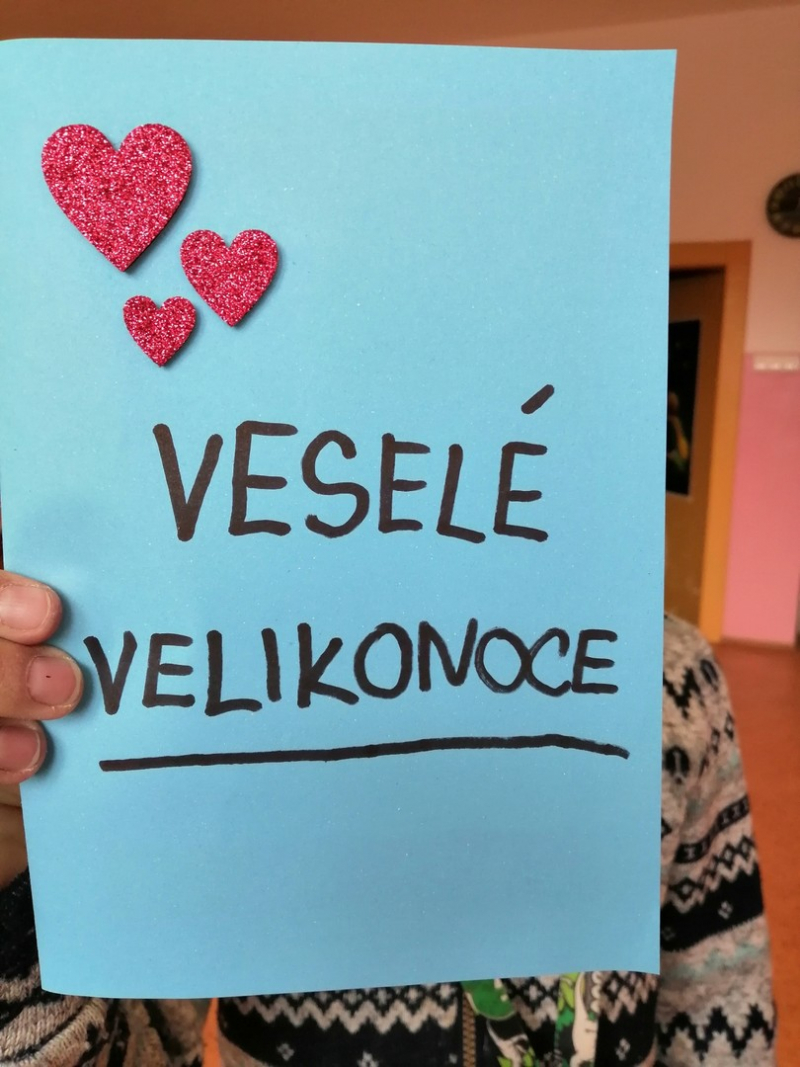 VESELÉ
VELIKONOCE